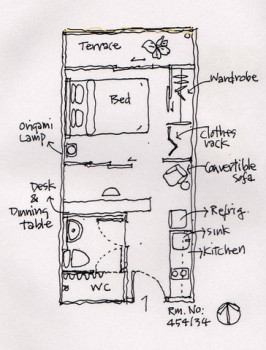 Terrace
Wardrobe
Bed
Origami
Lamp
Clothes
rack
Convertible
Sofa
Desk
&
Dinning
table
Refrig.
Sink
Kitchen
WC
1
Rm. No:
454/34